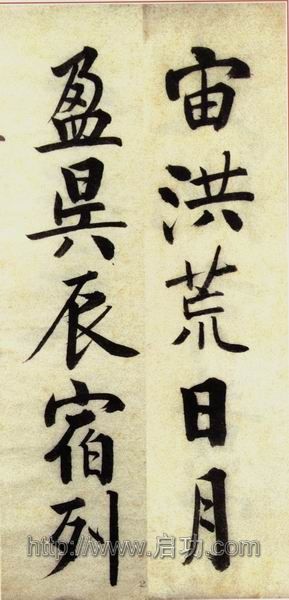 宙洪荒日月
盈昃辰宿列
http://www.启功.com